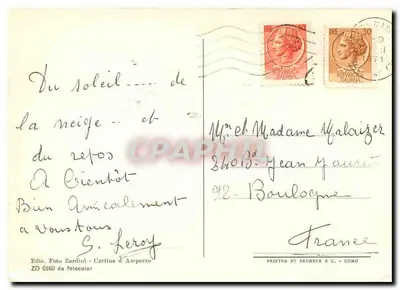 Du soleil .... de
la neige .. et
du repos
A Bientôt
Bien Amicalement
a vous tous
G. Leroy
Mr et Madame Malaizer
240 Bd Jean Jaurès
92 - Boulogne
France
Ediz. Foto Zardini - Cortina d'Ampezzo
ZD 0360 da fotocolor
PRINTED BY BRUNNER & C. - COMO